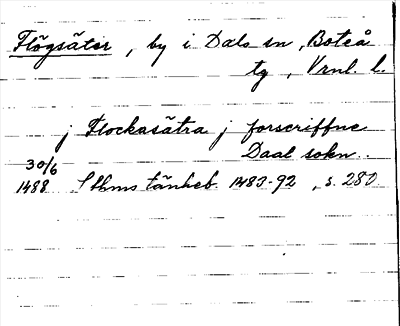 Flögsäter, by i Dals sn, Boteå
tg, Vrnl. l.
j Flockasätra j forscriffne
Daal sokn.
30/6
1488 Sthms tänkeb. 1483-92, s. 280